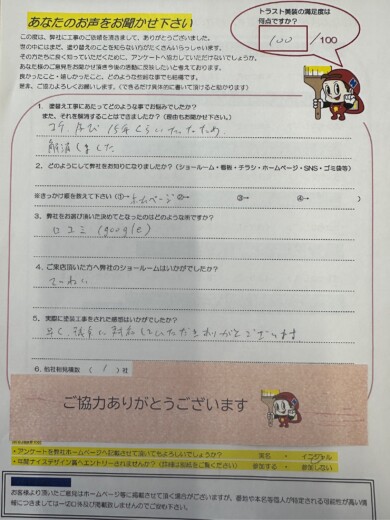 あなたのお声をお聞かせ下さい
トラスト美装の満足度は
何点ですか?
100 /100
この度は、弊社に工事のご依頼を頂きまして、ありがとうございました。
世の中にはまだ、塗り替えのことを知らない方がたくさんいらっしゃいます。
その方たちに良く知っていただくために、アンケートへ協力していただけないでしょうか。
あなた様のご意見をお聞かせ頂き今後の活動に反映したいと考えております。
良かったこと・嬉しかったこと、どのような些細な事でも結構です。
是非、ご協力よろしくお願いします。(できるだけ具体的に書いて頂けると助かります)
1. 塗替え工事にあたってどのような事でお悩みでしたか?
また、それを解消することはできましたか?(理由もお聞かせ下さい。)
15年くらいたったため
解消しました
2. どのようにして弊社をお知りになりましたか?(ショールーム・看板・チラシ・ホームページ・SNS・ゴミ袋等)
※きっかけ順を教えて下さい(①→ ホームページ ②→ ③→ ④→ )
3. 弊社をお選び頂いた決めてとなったのはどのような所ですか?
口コミ (google)
4. ご来店頂いた方へ弊社のショールームはいかがでしたか?
きれい
5. 実際に塗装工事をされた感想はいかがでしたか?
早く、対応していただきありがとうございます
6. 他社相見積数 ( 1 ) 社
ご協力ありがとうございます
・アンケートを弊社ホームページへ記載させて頂いてもよろしいでしょうか? 実名 ・ イニシャル
・年間ナイスデザイン賞へエントリーされませんか?(詳細は別紙をご覧ください) 参加する ・ 参加しない
お客様より頂いたご意見はホームページ等に掲載させて頂く場合がございますが、住所や本名等個人が特定される可能性が高い情
報につきましては一切口外及び掲載致しませんのでご安心下さい。